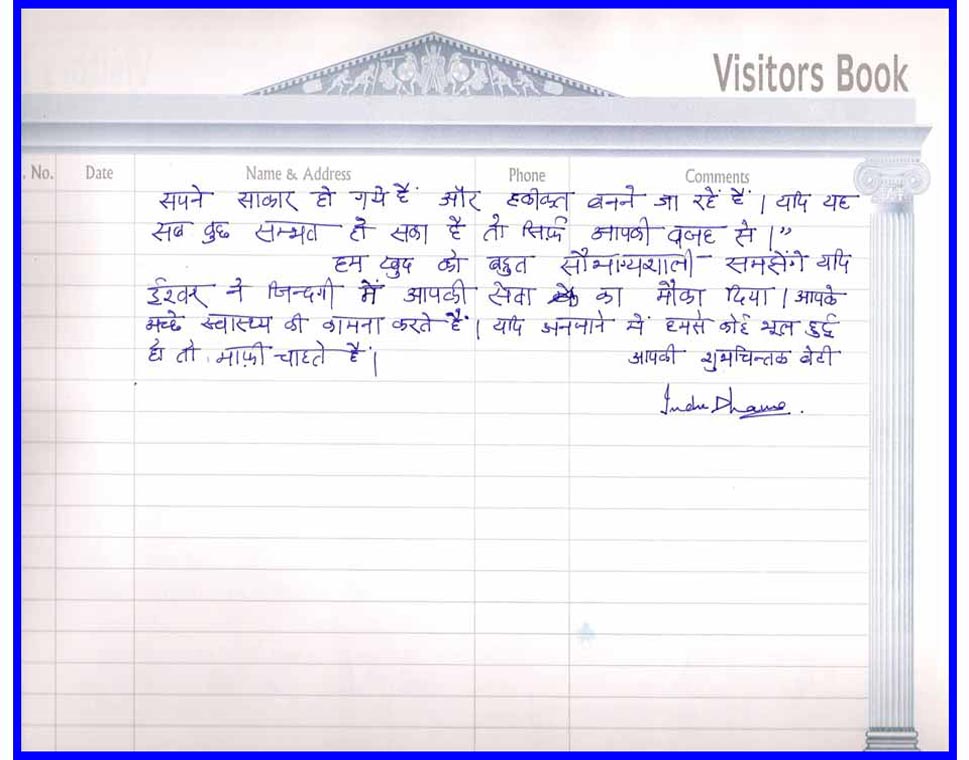 Visitors Book
. No. Date Name & Address Phone Comments
सपने साकार हो गये हैं और हकीकत बनने जा रहें हैं । यदि यह
सब कुछ सम्भव हो सका है तो सिर्फ़ आपकी वजह से ।"
हम खुद को बहुत सौभाग्यशाली समझेंगे यदि
ईश्वर ने जिन्दगी में आपकी सेवा का मौका दिया । आपके
अच्छे स्वास्थ्य की कामना करते हैं । यदि अनजाने में हमसे कोई भूल हुई
हो तो माफ़ी चाहते हैं ।
आपकी शुभचिन्तक बेटी
Indu